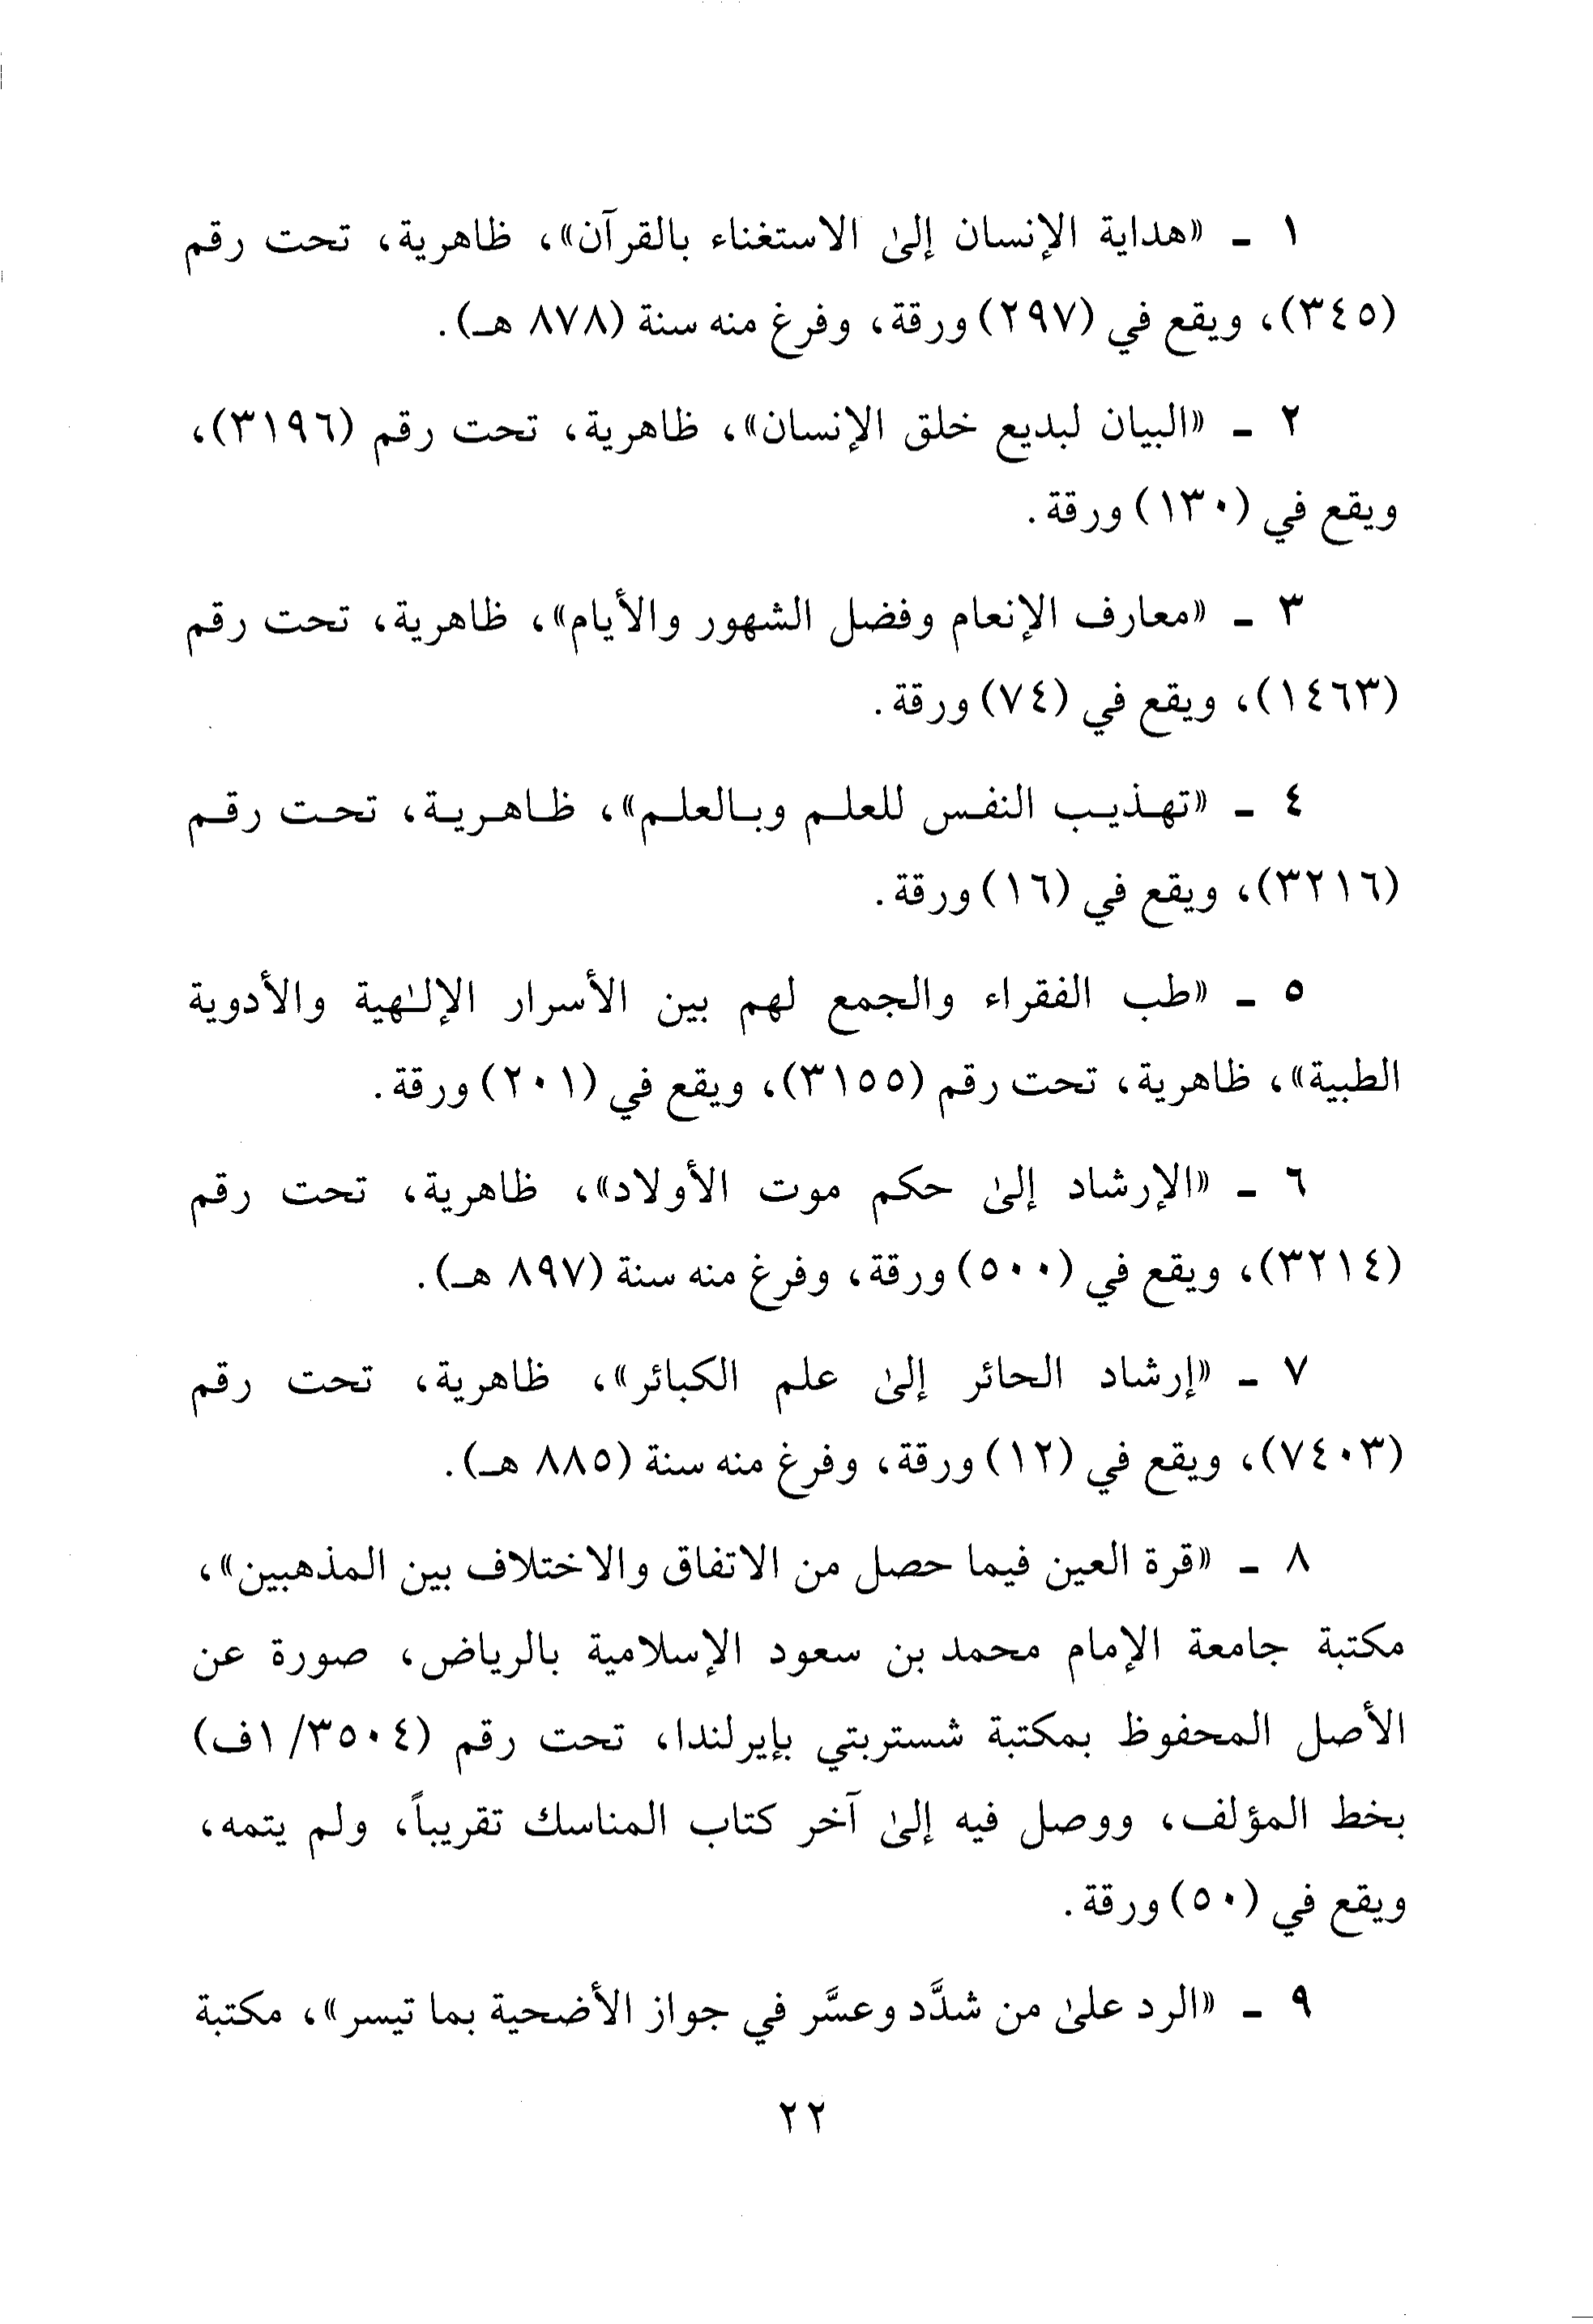 ١ ـ «هداية الإنسان إلىٰ الاستغناء بالقرآن»، ظاهرية، تحت رقم
(٣٤٥)، ويقع في (٢٩٧) ورقة، وفرغ منه سنة (٨٧٨ هـ).
٢ ـ «البيان لبديع خلق الإنسان»، ظاهرية، تحت رقم (٣١٩٦)،
ويقع في (١٣٠) ورقة.
٣ ـ «معارف الإنعام وفضل الشهور والأيام»، ظاهرية، تحت رقم
(١٤٦٣)، ويقع في (٧٤) ورقة.
٤ ـ «تهذيب النفس للعلم وبالعلم»، ظاهرية، تحت رقم
(٣٢١٦)، ويقع في (١٦) ورقة.
٥ ـ «طب الفقراء والجمع لهم بين الأسرار الإلـٰهية والأدوية
الطبية»، ظاهرية، تحت رقم (٣١٥٥)، ويقع في (٢٠١) ورقة.
٦ ـ «الإرشاد إلىٰ حكم موت الأولاد»، ظاهرية، تحت رقم
(٣٢١٤)، ويقع في (٥٠٠) ورقة، وفرغ منه سنة (٨٩٧ هـ).
٧ ـ «إرشاد الحائر إلىٰ علم الكبائر»، ظاهرية، تحت رقم
(٧٤٠٣)، ويقع في (١٢) ورقة، وفرغ منه سنة (٨٨٥ هـ).
٨ ـ «قرة العين فيما حصل من الاتفاق والاختلاف بين المذهبين»،
مكتبة جامعة الإمام محمد بن سعود الإسلامية بالرياض، صورة عن
الأصل المحفوظ بمكتبة شستربتي بإيرلندا، تحت رقم (٣٥٠٤/ ١ف)
بخط المؤلف، ووصل فيه إلىٰ آخر كتاب المناسك تقريباً، ولم يتمه،
ويقع في (٥٠) ورقة.
٩ ـ «الرد علىٰ من شدَّد وعسَّر في جواز الأضحية بما تيسر»، مكتبة
٢٢